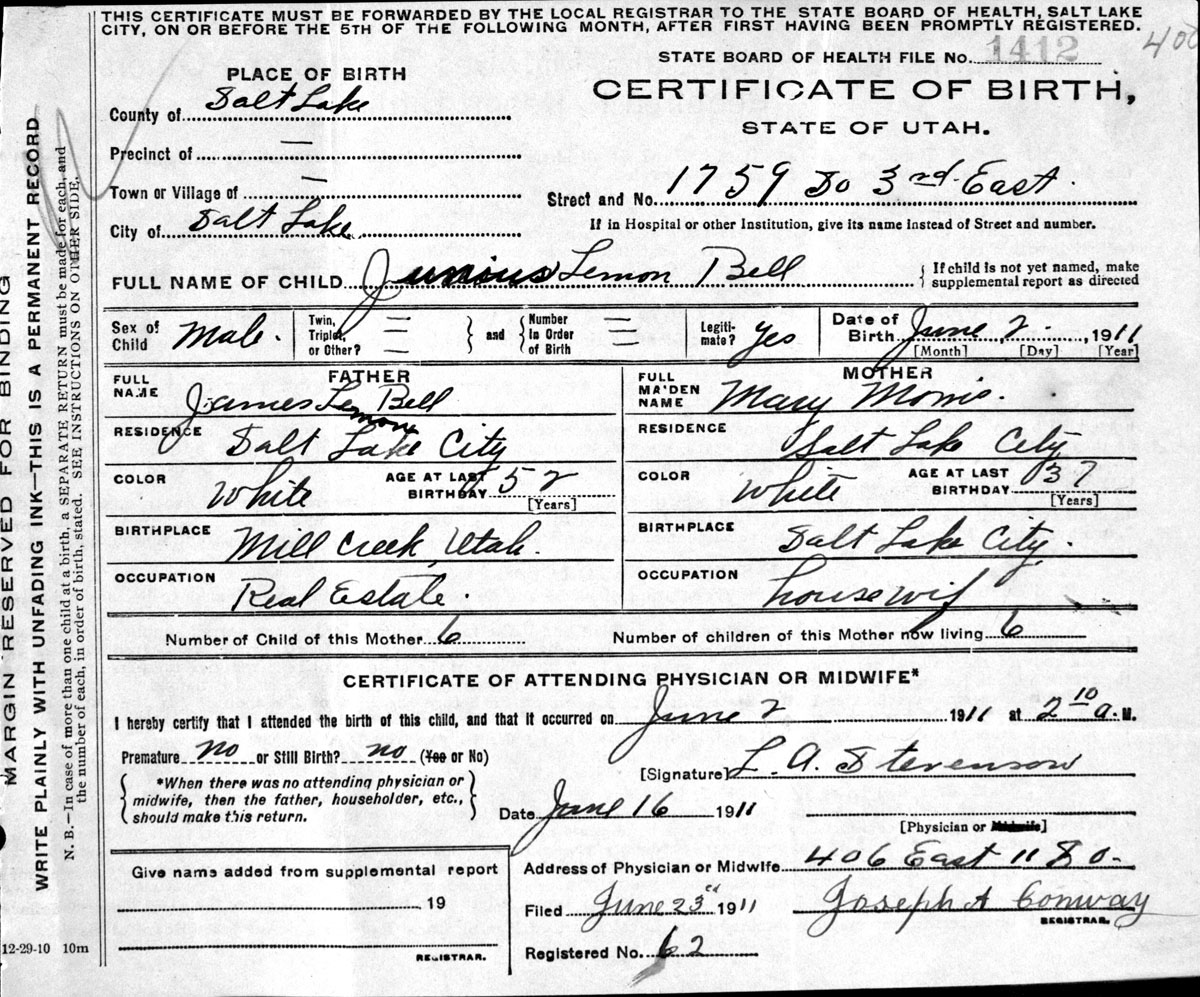 THIS CERTIFICATE MUST BE FORWARDED BY THE LOCAL REGISTRAR TO THE STATE BOARD OF HEALTH, SALT LAKE
CITY, ON OR BEFORE THE 5TH OF THE FOLLOWING MONTH, AFTER FIRST HAVING BEEN PROMPTLY REGISTERED.
STATE BOARD OF HEALTH FILE No. 1412
PLACE OF BIRTH
CERTIFICATE OF BIRTH,
STATE OF UTAH.
County of Salt Lake
Precinct of —
Town or Village of —
Street and No. 1759 So 3rd East.
City of Salt Lake
If in Hospital or other Institution, give its name instead of Street and number.
FULL NAME OF CHILD Junius Lemon Bell
If child is not yet named, make
supplemental report as directed
Sex of Child Male.
Twin, Triplet, or Other? —
and
Number In Order of Birth —
Legiti-mate? Yes
Date of Birth June 2. 1911
[Month] [Day] [Year]
FATHER
FULL NAME James Lemon Bell
RESIDENCE Salt Lake City
COLOR White
AGE AT LAST BIRTHDAY 52
[Years]
BIRTHPLACE Mill Creek, Utah.
OCCUPATION Real Estate.
MOTHER
FULL MAIDEN NAME Mary Morris.
RESIDENCE Salt Lake City
COLOR White
AGE AT LAST BIRTHDAY 37
[Years]
BIRTHPLACE Salt Lake City.
OCCUPATION housewif
Number of Child of this Mother 6
Number of children of this Mother now living 6
CERTIFICATE OF ATTENDING PHYSICIAN OR MIDWIFE*
I hereby certify that I attended the birth of this child, and that it occurred on June 2 1911 at 2 10 a. M.
Premature no or Still Birth? no (Yes or No)
*When there was no attending physician or
midwife, then the father, householder, etc.,
should make this return.
[Signature] L. A. Stevenson
Date June 16 1911
[Physician or Midwife]
Address of Physician or Midwife 406 East 11 So.
Give name added from supplemental report
19
REGISTRAR.
Filed June 23rd 1911
Joseph A Conway
REGISTRAR.
Registered No. 62
12-29-10 10m
MARGIN RESERVED FOR BINDING
WRITE PLAINLY WITH UNFADING INK—THIS IS A PERMANENT RECORD
N. B.—In case of more than one child at a birth, a SEPARATE RETURN must be made for each, and
the number of each, in order of birth, stated. SEE INSTRUCTIONS ON OTHER SIDE.